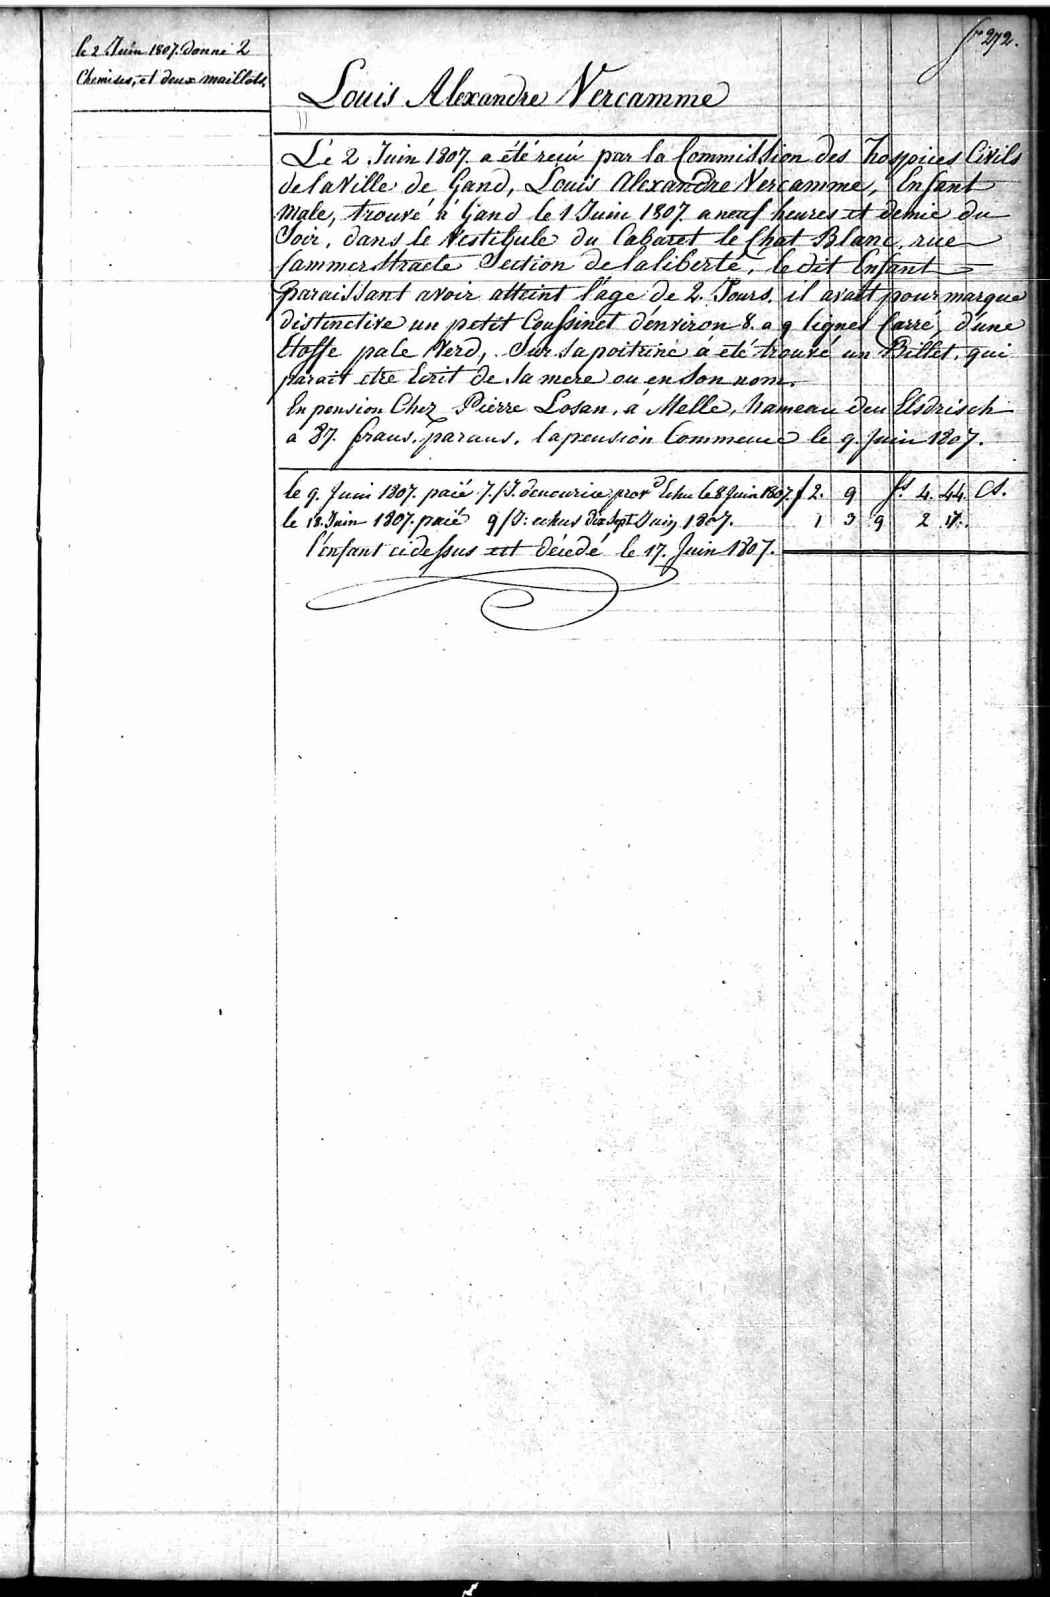 fo 272.
le 2 Juin 1807. donné 2
Chemises, et deux maillots.
Louis Alexandre Vercamme
Le 2 Juin 1807. a été reçu par la Commission des hospices Civils
de la Ville de Gand, Louis Alexandre Vercamme, Enfant
Male, trouvé à Gand le 1 Juin 1807. a neuf heures et demie du
Soir, dans le Vestibule du Cabaret le Chat Blanc, rue
Sammerstraete Section de la liberté, le dit Enfant
paraissant avoir atteint l'age de 2. Jours. il avait pour marque
distinctive un petit Coussinet d'environ 8. a 9 lignes Carré, d'une
Etoffe pale Verd, Sur sa poitrine à été trouvé un Billet, qui
parait etre Ecrit de sa mere ou en Son nom.
En pension Chez Pierre Losan, à Melle, hameau den Elsdrisch
a 87. francs. par ans. la pension Commence le 9. Juin 1807.
le 9. Juin 1807. paié 7./J. de nourice prov.d Echu le 8 Juin 1807. f 2. 9 fs. 4. 44 Cs.
le 18. Juin 1807. paié 9/J: echus dix Sept Juin 1807. 1 3 9 2 17.
l'enfant ci dessus est décedé le 17. Juin 1807.